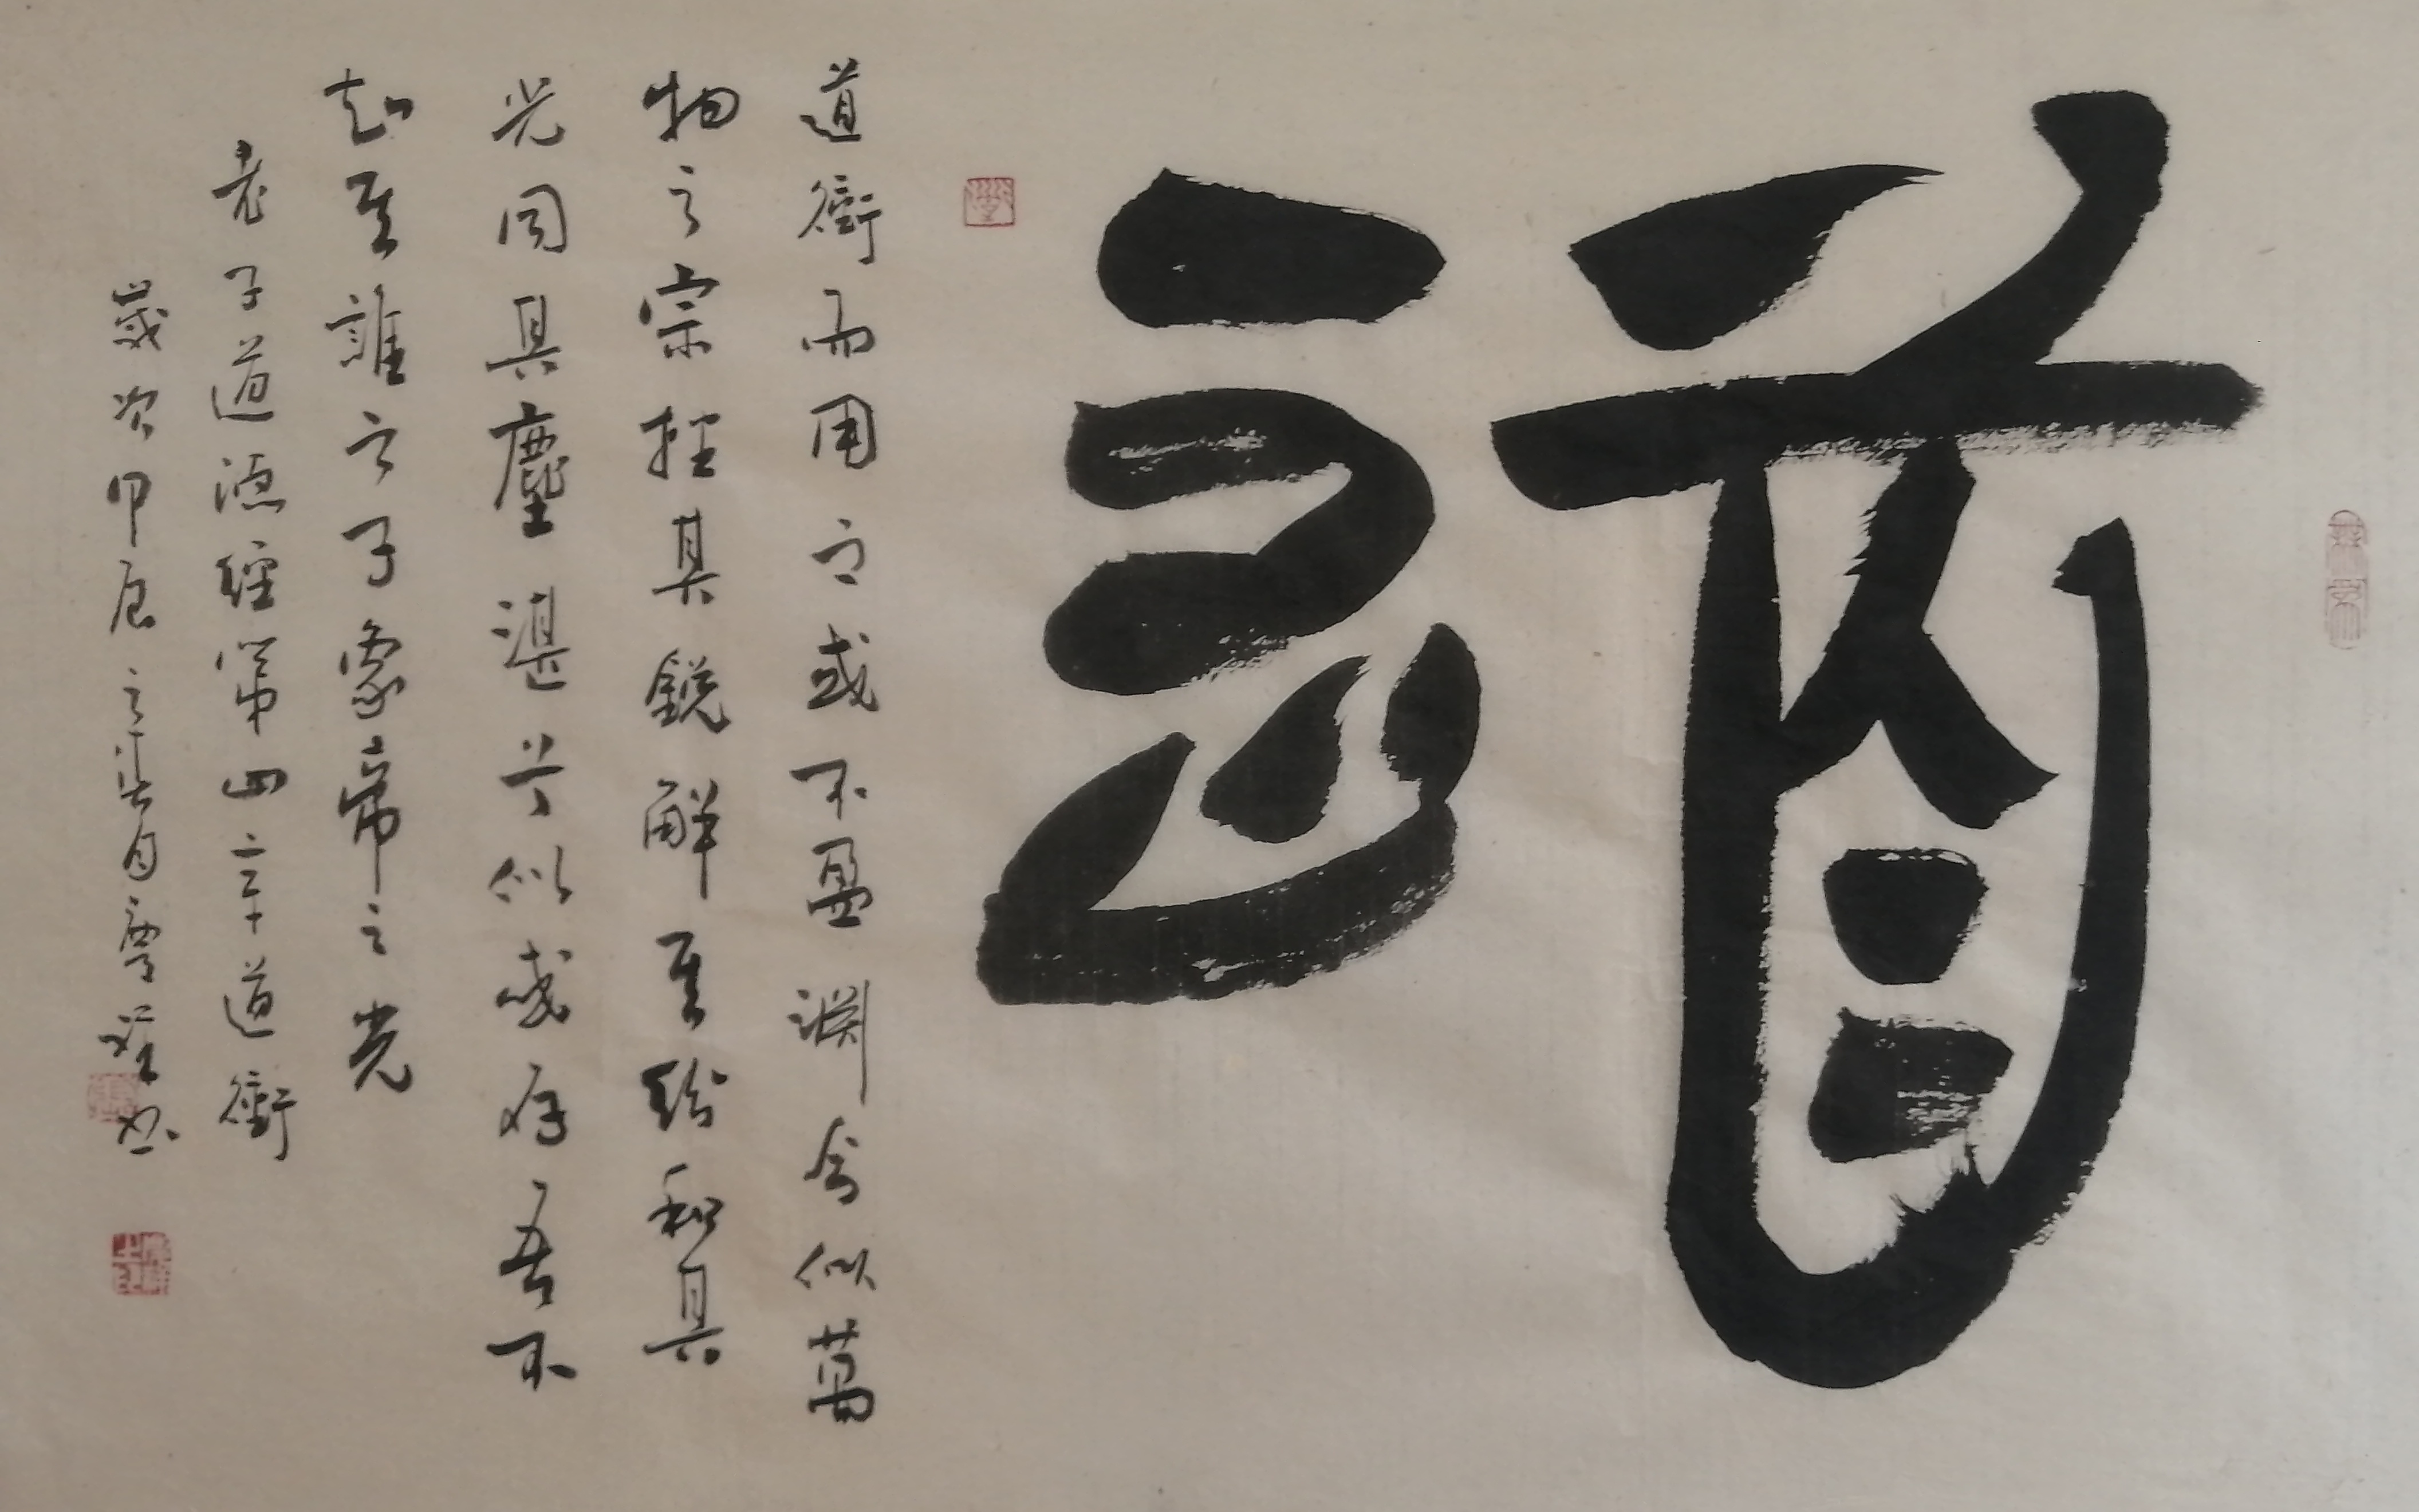 道
道衝而用之或不盈淵兮似萬
物之宗挫其銳解其紛和其
光同其塵湛兮似或存吾不
知其誰之子象帝之先
老子道德經第四章道衝
歲次甲辰之